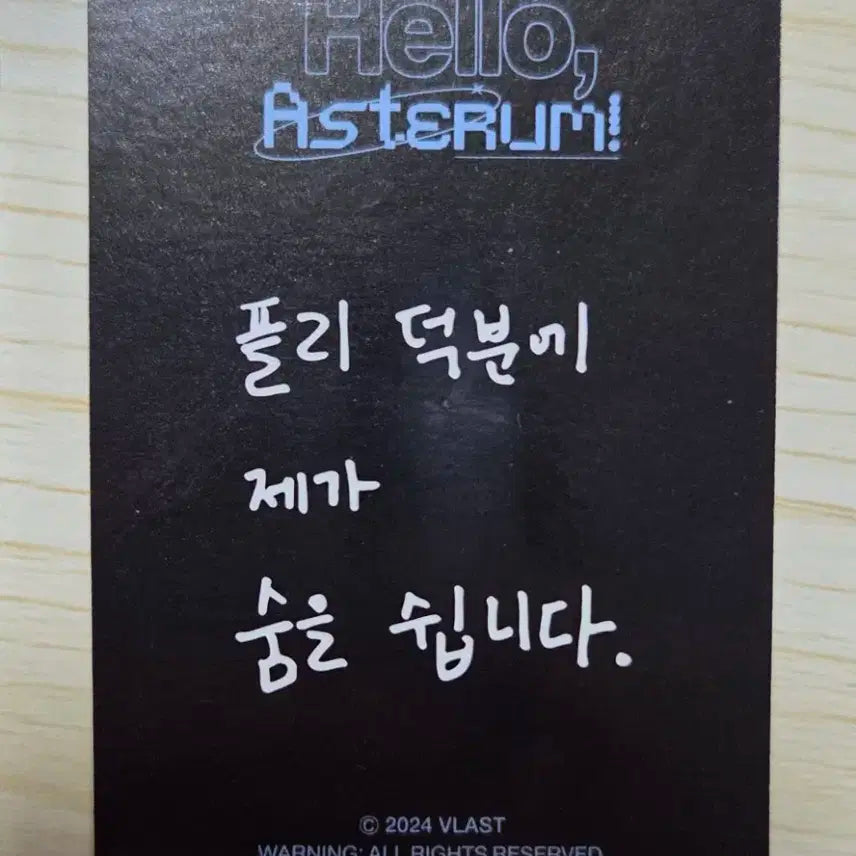 Hello,
Asterum!
플리 덕분에
제가
숨을 쉽니다.
© 2024 VLAST
WARNING: ALL RIGHTS RESERVED